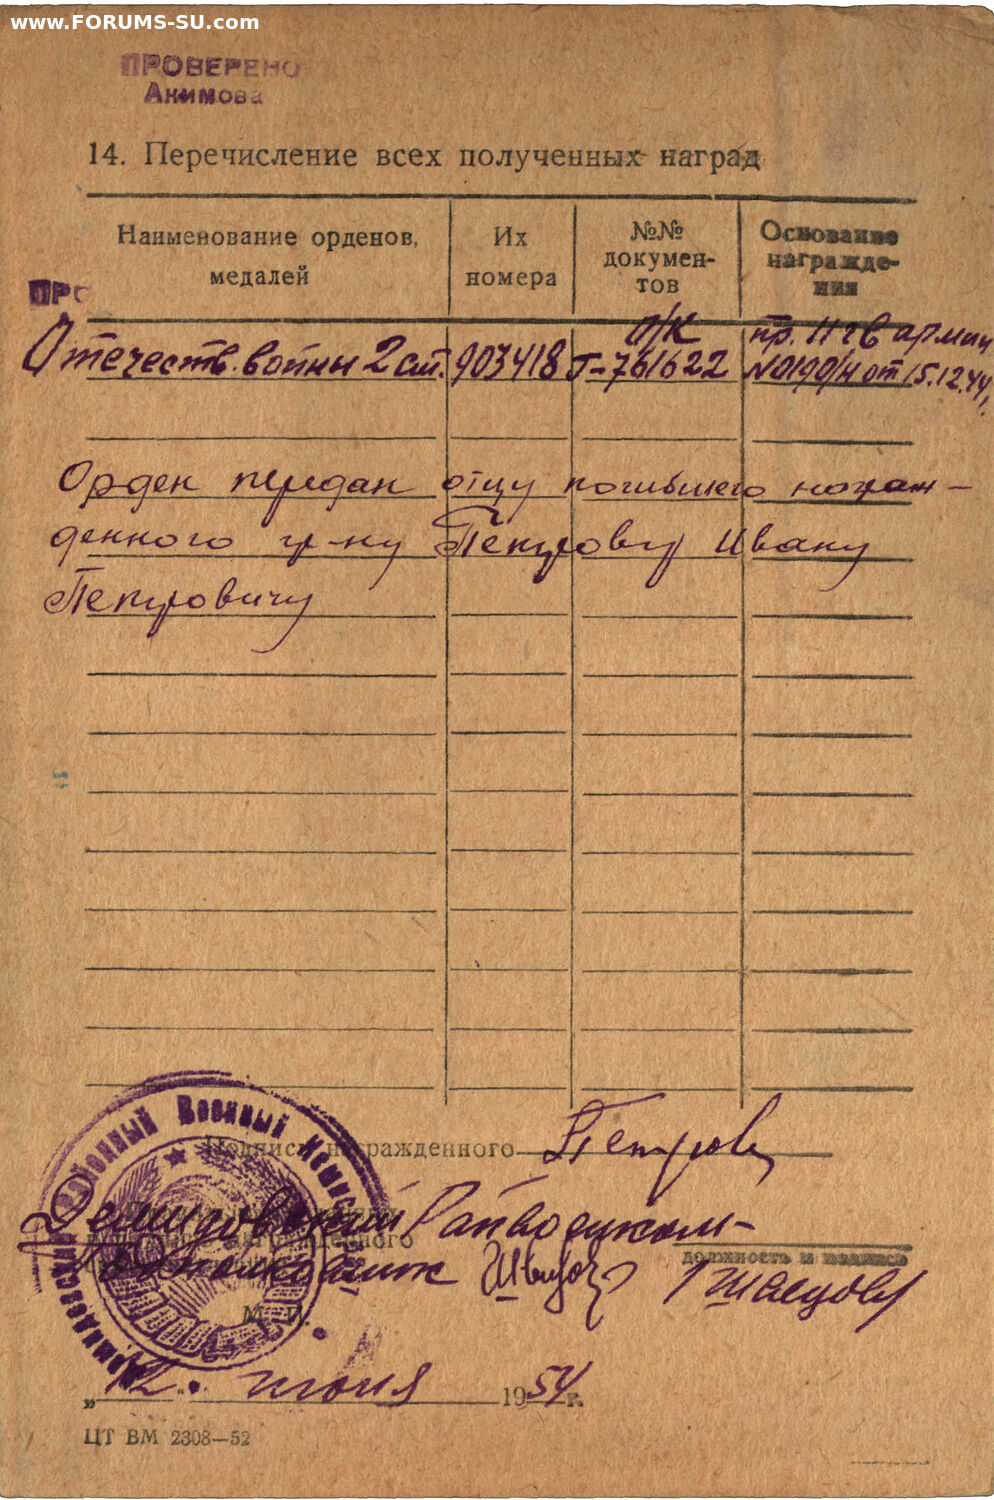 www.FORUMS-SU.com
ПРОВЕРЕНО
Акимова
14. Перечисление всех полученных наград
Наименование орденов, медалей
Их номера
№№ докумен-тов
Основание награжде-ния
ПРО
Отечеств. войны 2 ст. 903418 о/к Г-761622 пр. 11 гв армии №0190/н от 15.12.44г.
Орден передан отцу погибшего награж-
денного гр-ну Петрову Ивану
Петровичу
Подпись награжденного Петров
Демидовский Райвоенком-
должность и подпись
Подполковник
М. П.
„12." июня 1954 г.
ЦТ ВМ 2308—52